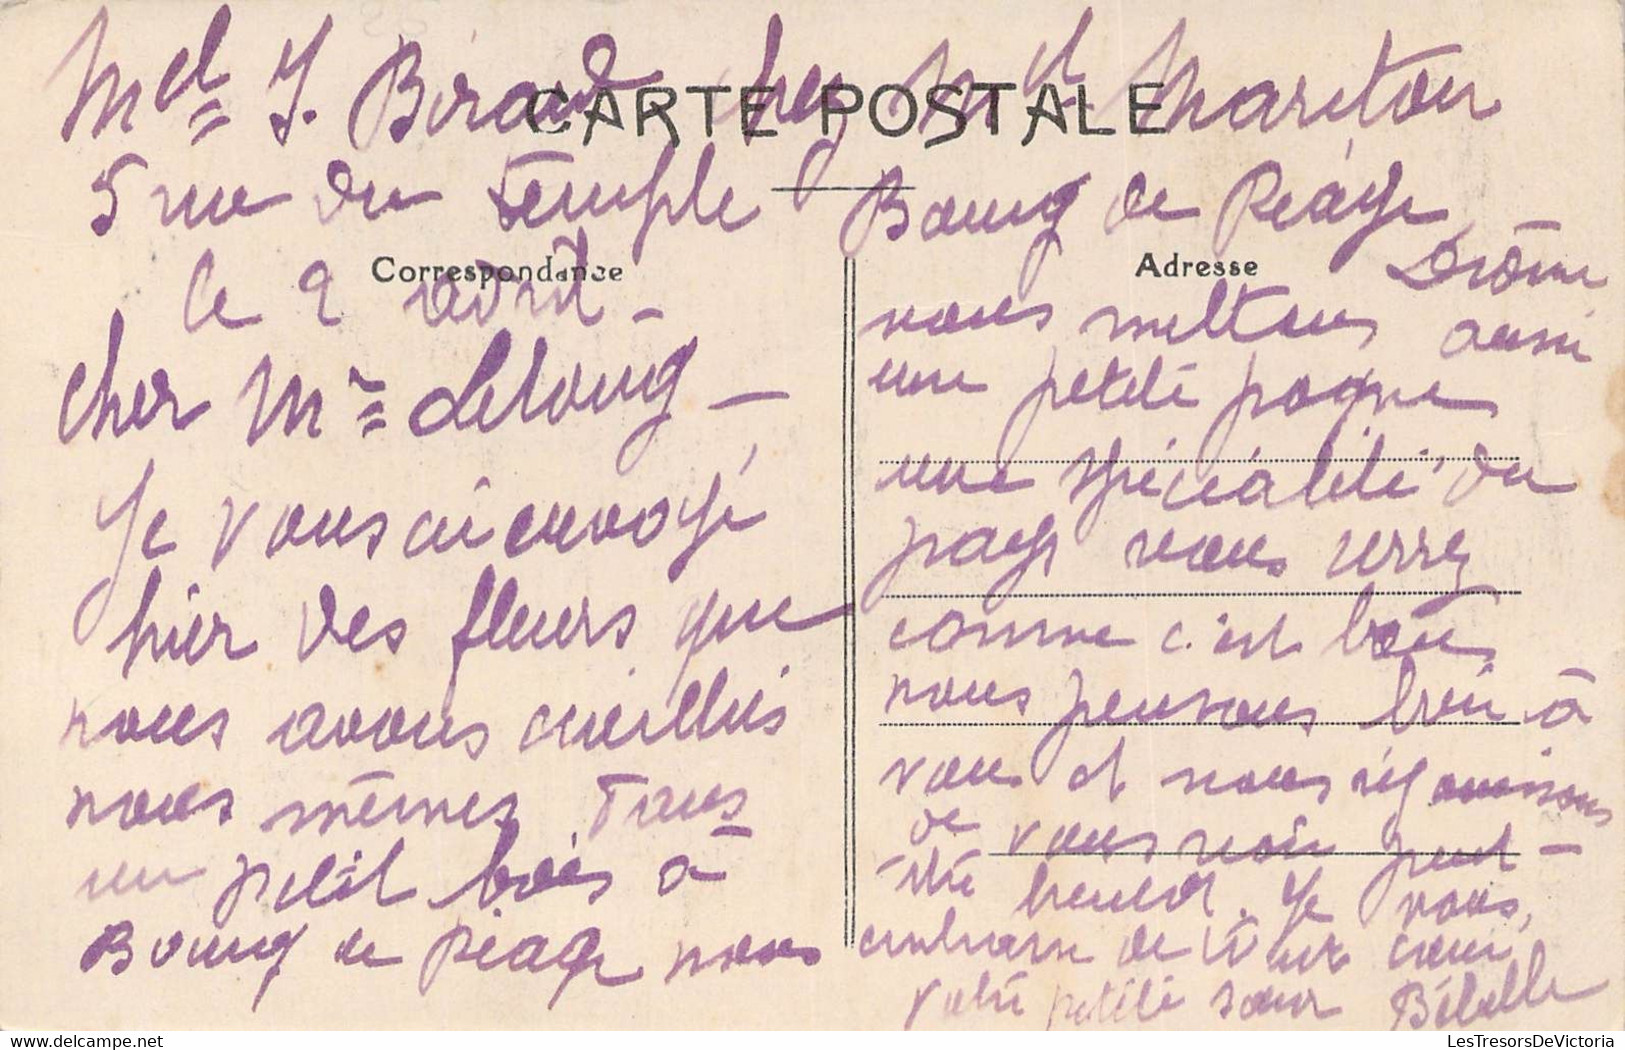 Mel J. Biraud chez Mel Mariton
CARTE POSTALE
5 rue du Temple Bourg de Péage
Drôme
Correspondance
le 2 avril -
cher Mr Lelong -
Je vous ai envoyé
hier des fleurs que
nous avons cueillies
nous mêmes. Dans
un petit bois à
Bourg de Péage nous
Adresse
vous mettons aussi
une petite pogne
une spécialité du
pays vous verrez
comme c'est bon,
nous pensons bien à
vous et nous réjouissons
de vous voir peut-
être bientôt. Je vous
embrasse de tout cœur
votre petite sœur